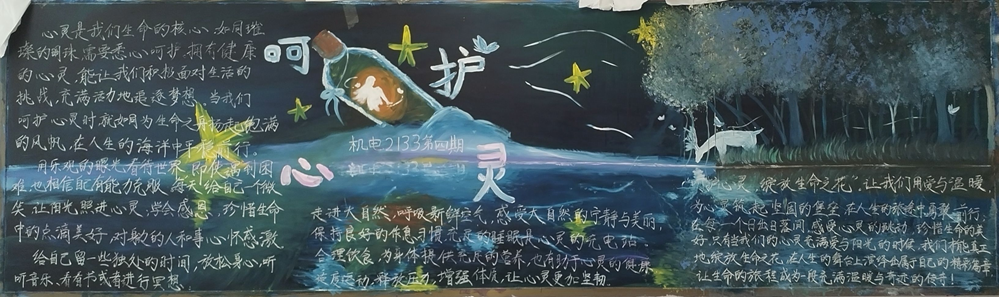 心灵是我们生命的核心,如同璀
璨的明珠,需要悉心呵护,拥有健康
的心灵,能让我们积极面对生活的
挑战,充满活力地追逐梦想,当我们
呵护心灵时,就如同为生命之舟扬起饱满
的风帆,在人生的海洋中平稳前行。
用乐观的眼光看待世界,即使遇到困
难,也相信能有能力克服,每天给自己一个微
笑,让阳光照进心灵,学会感恩,珍惜生命
中的点滴美好,对身边的人和事心怀感激
给自己留一些独处的时间,放松身心,听
听音乐、看看书或者进行冥想。
呵护
心灵
机电2133第四期
走进大自然,呼吸新鲜空气,感受大自然的宁静与美丽,
保持良好的作息习惯,充足的睡眠是心灵的充电站
合理饮食,为身体提供充足的营养,也有助于心灵的健康
适度运动,释放压力,增强体质,让心灵更加坚韧.
心灵,绽放生命之花”,让我们用爱与温暖,
为心灵筑起坚固的堡垒,在人生的旅途中勇敢前行,
在每一个日出日落间,感受心灵的跃动,珍惜生命的美
好,只有当我们的心灵充满爱与阳光的时候,我们才能真正
地绽放生命之花,在人生的舞台上演绎出属于自己的精彩篇章
让生命的旅程成为一段充满温暖与奇迹的传奇!